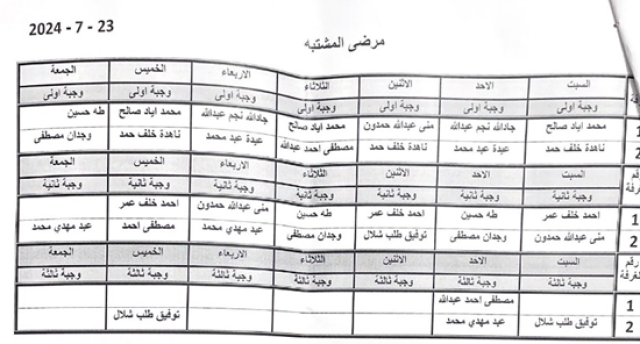 23 - 7 - 2024
مرضى المشتبه
السبت الاحد الاثنين الثلاثاء الاربعاء الخميس الجمعة
وجبة اولى وجبة اولى وجبة اولى وجبة اولى وجبة اولى وجبة اولى وجبة اولى
1 محمد اياد صالح جادالله نجم عبدالله منى عبدالله حمدون محمد اياد صالح جادالله نجم عبدالله محمد اياد صالح طه حسين
2 ناهدة خلف حمد عبدة عبد محمد ناهدة خلف حمد مصطفى احمد عبدالله عبدة عبد محمد ناهدة خلف حمد وجدان مصطفى
رقم السبت الاحد الاثنين الثلاثاء الاربعاء الخميس الجمعة
الغرفة وجبة ثانية وجبة ثانية وجبة ثانية وجبة ثانية وجبة ثانية وجبة ثانية وجبة ثانية
1 احمد خلف عمر طه حسين احمد خلف عمر طه حسين منى عبدالله حمدون احمد خلف عمر
2 منى عبدالله حمدون وجدان مصطفى توفيق طلب شلال وجدان مصطفى عبد مهدي محمد مصطفى احمد عبد مهدي محمد
رقم السبت الاحد الاثنين الثلاثاء الاربعاء الخميس الجمعة
الغرفة وجبة ثالثة وجبة ثالثة وجبة ثالثة وجبة ثالثة وجبة ثالثة وجبة ثالثة وجبة ثالثة
1 مصطفى احمد عبدالله
2 توفيق طلب شلال عبد مهدي محمد توفيق طلب شلال